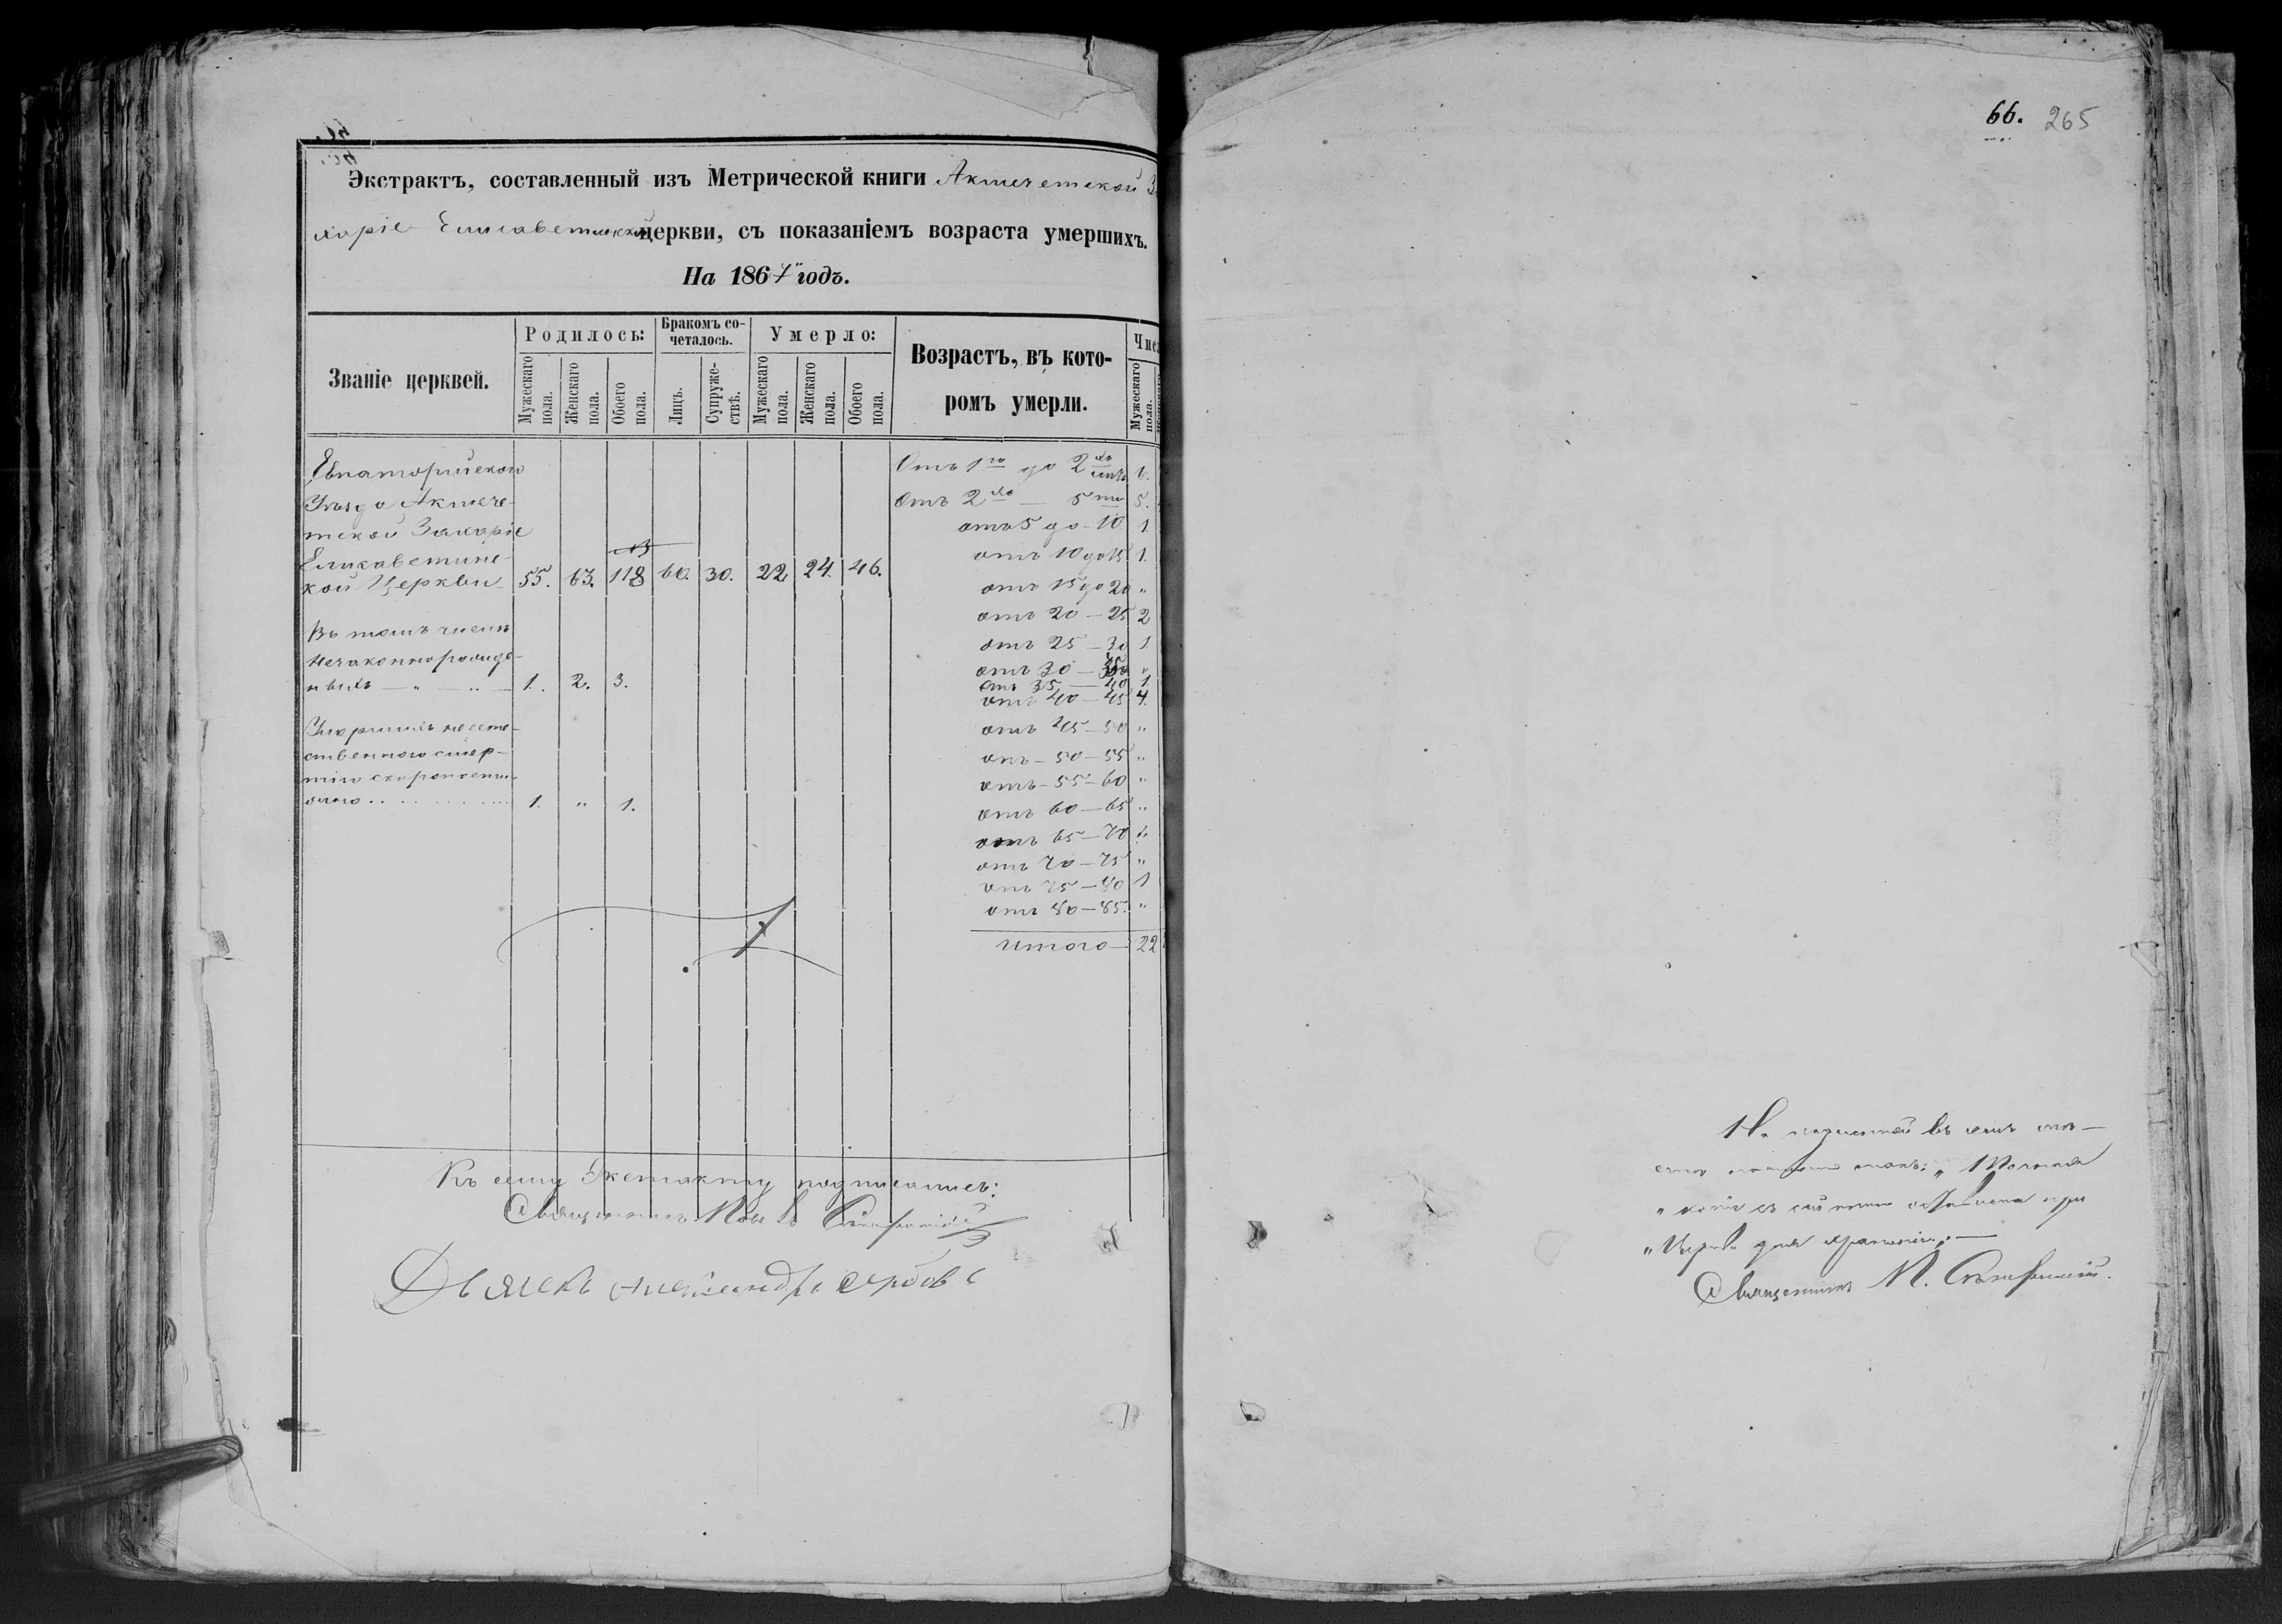 Экстрактъ, составленный изъ Метрической книги Акмечетской За
харіе Елисаветинской церкви, съ показаніемъ возраста умершихъ.
На 1867 годъ.
Званіе церквей.
Родилось:
Мужескаго пола.
Женскаго пола.
Обоего пола.
Бракомъ сочеталось.
Лицъ.
Супружествъ.
Умерло:
Мужескаго пола.
Женскаго пола.
Обоего пола.
Возрастъ, въ которомъ умерли.
Мужескаго пола.
Евпаторійской
Уѣзда Акмече-
тской Захаріе
Елисаветинс-
кой Церкви 55. 63. 118 60. 30. 22 24. 46.
Въ томъ числѣ
незаконнорожде-
нныхъ — „ — „ — 1. 2. 3.
Умершихъ несте-
ственною смер-
тію скоропости-
1. „ 1.
Отъ 1го до 2хъ лѣтъ
Отъ 2хъ — 5ти 5.
отъ 5 до 10 1
отъ 10 до 15 1.
отъ 15 до 20 „
отъ 20 — 25 2
отъ 25 — 30 1
отъ 30 — 35 „
отъ 35 — 40 1
отъ 40 — 45 4.
отъ 45 — 50 „
отъ — 50 — 55 „
отъ — 55 — 60 „
отъ 60 — 65 „
отъ 65 — 70
отъ 70 — 75 „
отъ 75 — 80 1
отъ 80 — 85. „
Итого — 22
Къ сему Экстракту подписались:
Священникъ
Дьячекъ Александръ Сербовъ
66. 265
„ для храненія. —
Священникъ П.